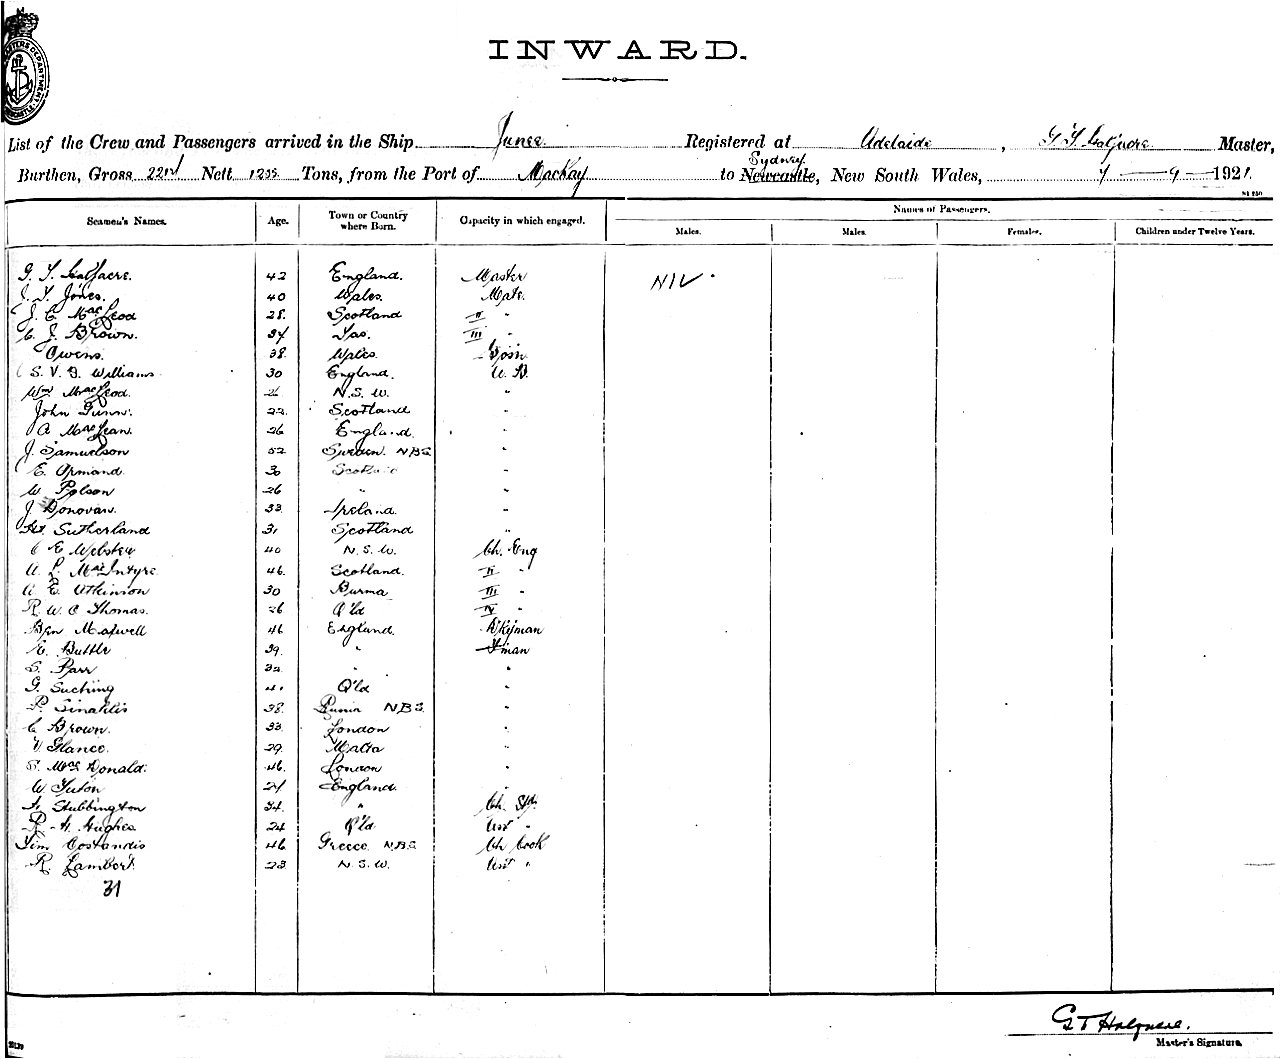 INWARD.
List of the Crew and Passengers arrived in the Ship Junee Registered at Adelaide, G. T. Master,
Burthen, Gross 2221 Nett 1255 Tons, from the Port of Mackay to Sydney Newcastle, New South Wales, 7 — 9 — 1921.
Seamen's Names. Age. Town or Country where Born. Capacity in which engaged. Names of Passengers.
Males. Males. Females. Children under Twelve Years.
G. T. Halfacre. 42 England. Master NIL
J. T. Jones. 40 Wales. Mate.
J. C. MacLeod 28. Scotland II "
C. J. Brown. 34 Tas. III "
Owens. 38. Wales. Bosn
S. V. B. Williams 30 England. A. B.
Wm MacLeod. N. S. W. "
John Gunn. 22. Scotland "
A. MacLean. 26 England. "
J. Samuelson 52 Sweden. NBS "
E. Ormand. 30 Scotland "
W Polson 26 " "
J. Donovan. 33. Ireland. "
Sutherland 31 Scotland "
C E Webster 40 N. S. W. Ch. Eng
A. L. MacIntyre. 46. Scotland. II "
A. E. Atkinson 30 Burma III "
R. W. C Thomas. 26 Q'ld IV "
Ben Maxwell 46 England. D'Keyman
E. Buttle 39. " F'man
S. Parr 32. " "
G. Suching Q'ld "
P. Sinahlis 38. NBS. "
C Brown. 33. London "
V Glance. 29. Malta "
Mac Donald. 46. London "
W. Tuton 24 England.
Stubbington 34. " Ch. Std.
R H. Hughes. 24 Q'ld Asst "
Jim Costandis 46 Greece NBS Ch Cook
R. Lambert. 23 N. S. W. Asst "
31
G T Halfacre.
Master's Signature.